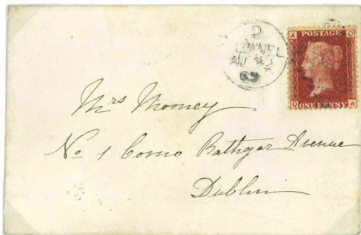 D
AU 2
69
A Q
POSTAGE
ONE PENNY
Q A
Mrs Mooney
No 1 Como Rathgar Avenue
Dublin